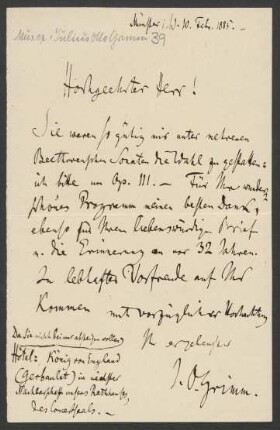 Münster i./W. 10. Febr. 1885.
39
Hochgeehrter Herr!
Sie waren so gütig mir unter mehreren
Beethovenschen Sonaten die Wahl zu gestatten:
ich bitte um Op. 111. — Für Ihr wunder-
schönes Programm meinen besten Dank,
ebenso für Ihren liebenswürdigen Brief
u. die Erinnerung an vor 32 Jahren.
In lebhafter Vorfreude auf Ihr
Kommen mit vorzüglicher Hochachtung
Ihr ergebenster
J. O. Grimm.
Da Sie nicht bei mir absteigen wollen,
Hôtel: König von England
(Gerbaulet) in nächster
Nachbarschaft unseres Rathhauses,
des Concertsaals. —